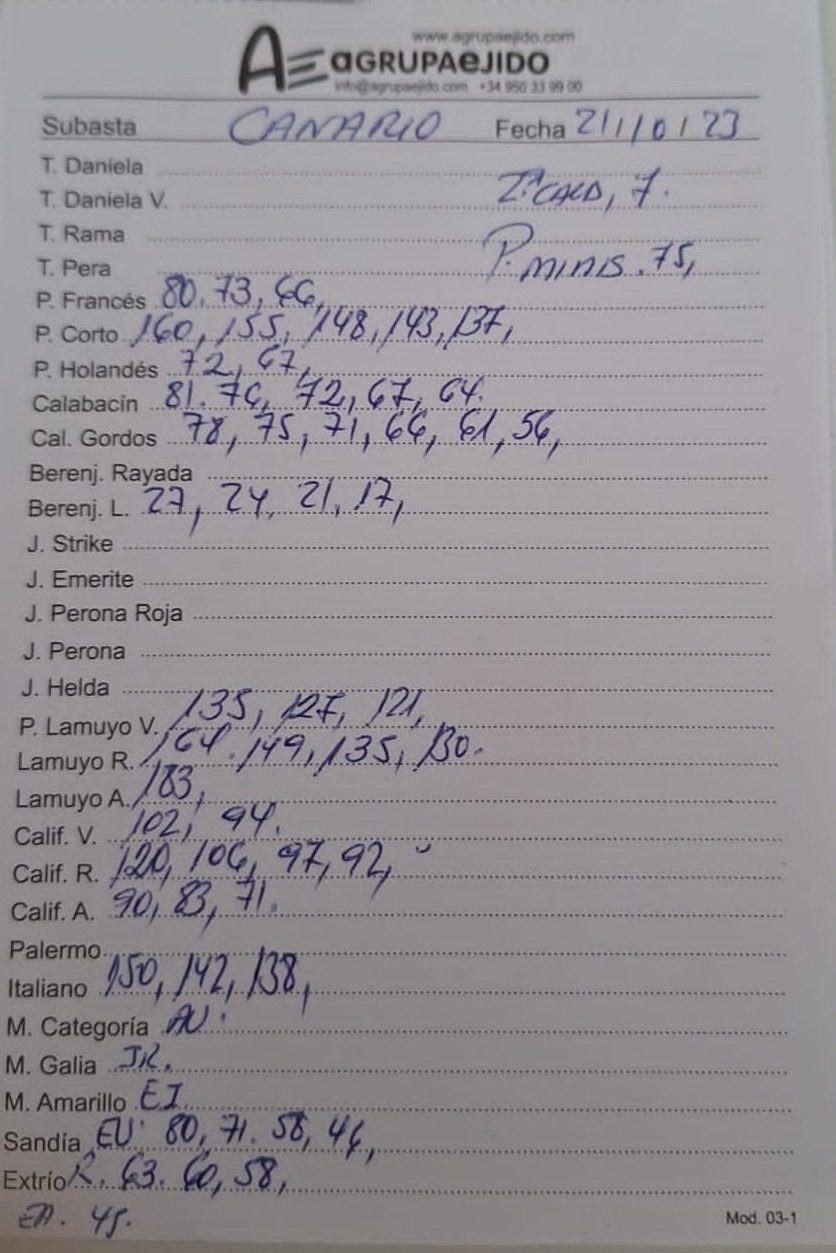 www.agrupaejido.com
AGRUPAEJIDO
info@agrupaejido.com +34 950 33 99 00
Subasta CANARIO Fecha 21/10/23
T. Daniela
T. Daniela V. 2ª CALD, 7.
T. Rama
T. Pera P. MINIS. 75,
P. Francés 80. 73, 66,
P. Corto 160, 155, 148, 143, 137,
P. Holandés 72, 67,
Calabacín 81. 76, 72, 67, 64.
Cal. Gordos 78, 75, 71, 66, 61, 56,
Berenj. Rayada
Berenj. L. 27, 24, 21, 17,
J. Strike
J. Emerite
J. Perona Roja
J. Perona
J. Helda
P. Lamuyo V. 135, 127, 121,
Lamuyo R. 164. 149, 135, 130.
Lamuyo A. 183,
Calif. V. 102, 94.
Calif. R. 120, 106, 97, 92,
Calif. A. 90, 83, 71.
Palermo
Italiano 150, 142, 138,
M. Categoría AU.
M. Galia JR.
M. Amarillo EI
Sandía EU. 80, 71. 58, 46,
Extrío R. 63. 60, 58,
EA. 45.
Mod. 03-1